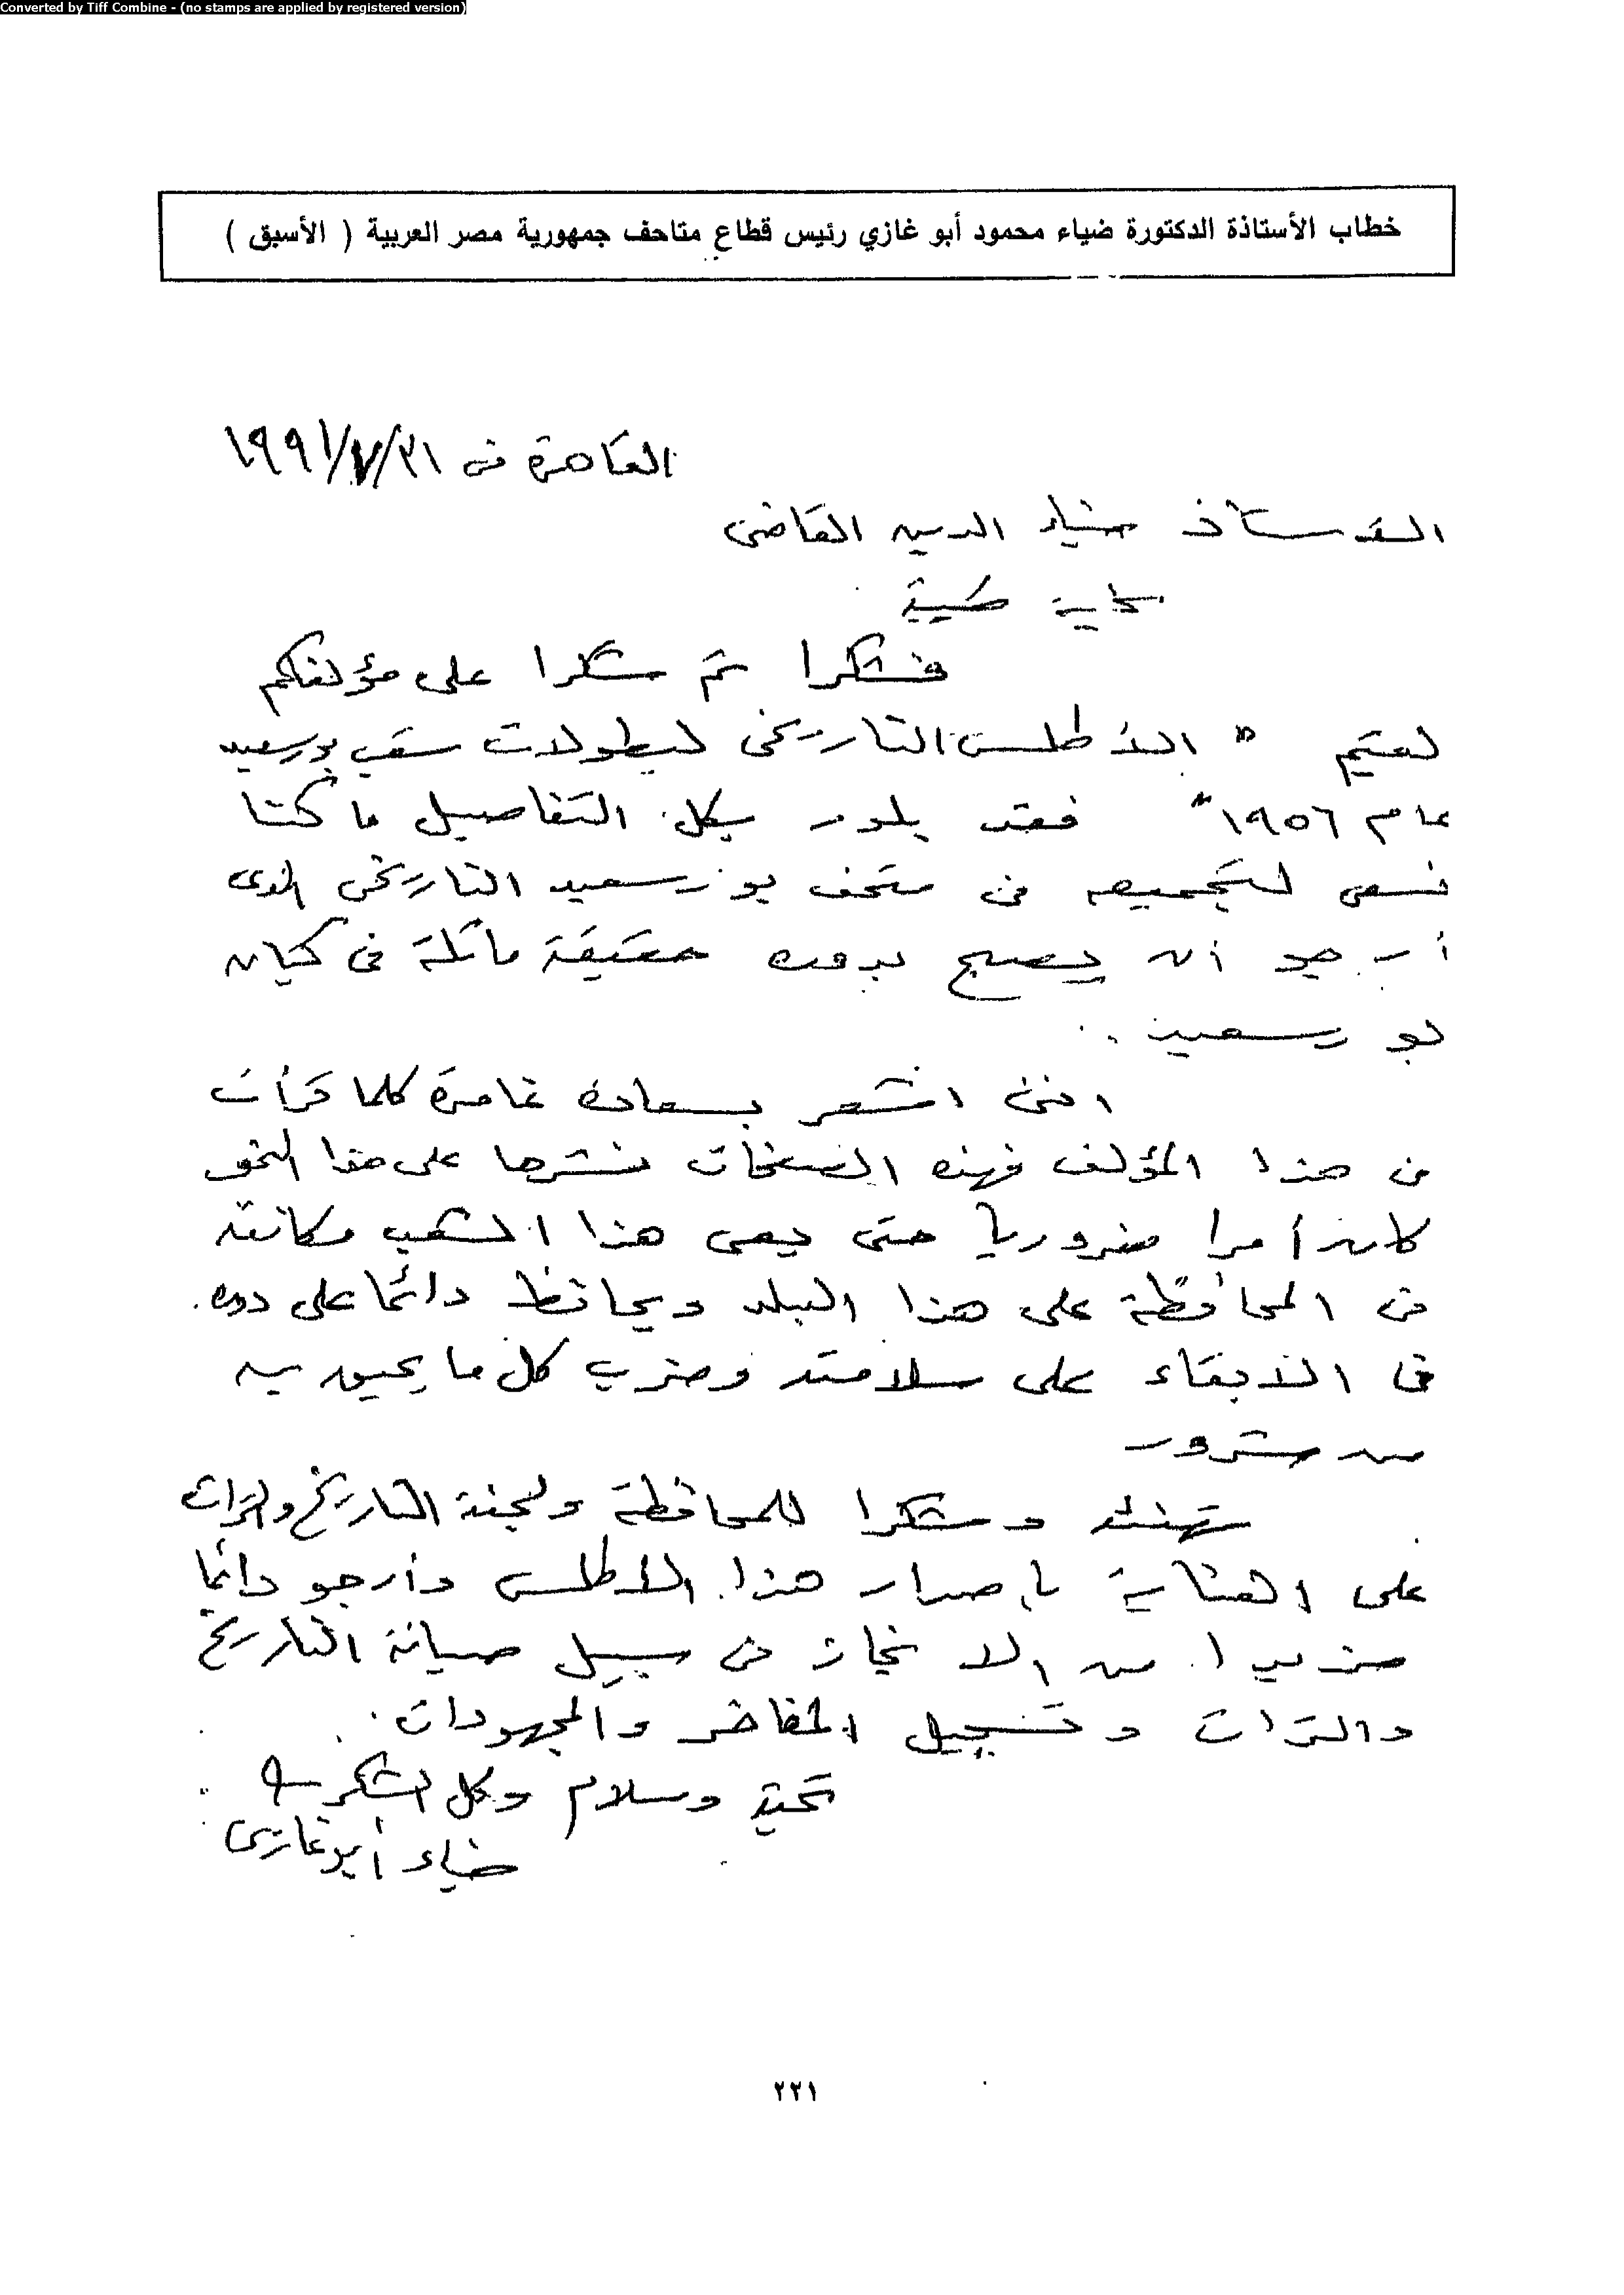 Converted by Tiff Combine - (no stamps are applied by registered version)
خطاب الأستاذة الدكتورة ضياء محمود أبو غازي رئيس قطاع متاحف جمهورية مصر العربية ( الأسبق )
القاهرة فى ٣١/٧/١٩٩١
الأستاذ ضياء الدين القاضى
تحية طيبة
فشكرا ثم شكرا على مؤلفكم
القيم " الأطلس التاريخى لبطولات شعب بورسعيد
عام ١٩٥٦ " فقد بلور بكل التفاصيل ما كنا
نسعى لتجميعه فى متحف بورسعيد التاريخى الذى
أرجو أن يصبح بدوره حقيقة ماثلة فى كيان
بورسعيد .
اننى اشعر بسعادة غامرة كلما قرأت
فى هذا المؤلف فهذه الصفحات نشرها على هذا النحو
كان أمرا ضروريا حتى يعى هذا الشعب مكانته
فى المحافظة على هذا البلد ويحافظ دائما على دوره
فى الابقاء على سلامته وضرب كل ما يحيق به
من شرور
تهنئة وشكرا للمحافظة ولجنة التاريخ والتراث
على العناية بإصدار هذا الاطلس وأرجو دائما
مزيدا من الانجاز فى سبيل صيانة التاريخ
والتراث وتسجيل المفاخر والمجهودات .
تحية وسلام وكل الشكر
ضياء أبو غازى
٢٢١